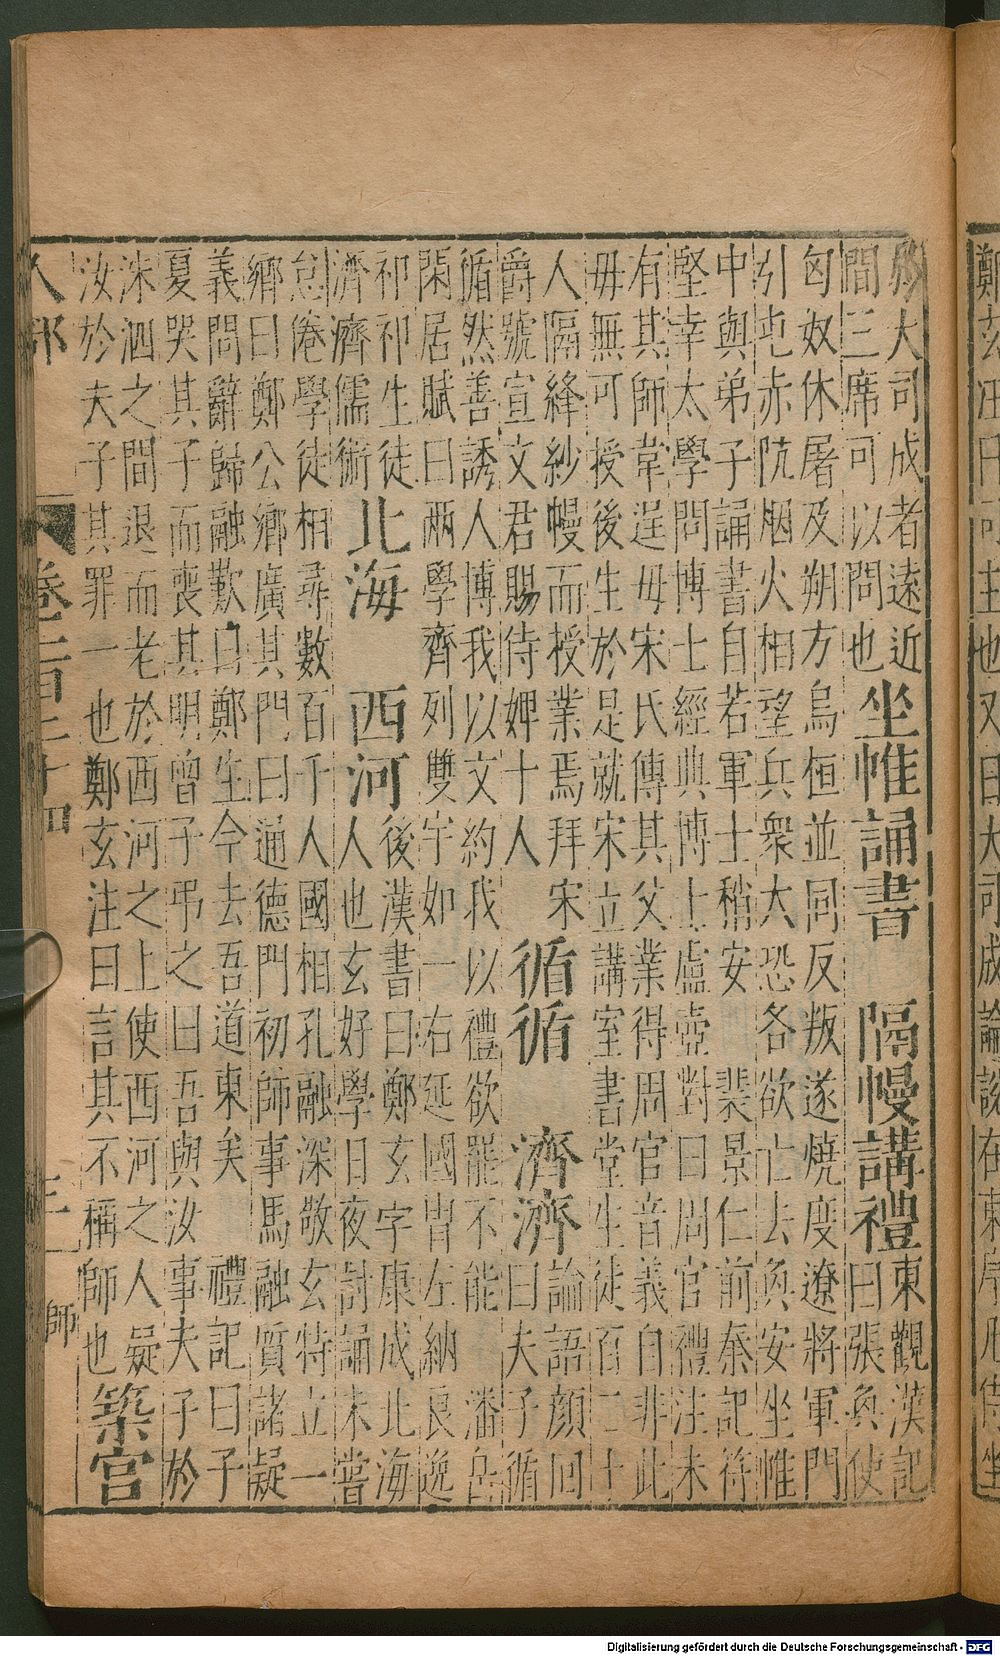 鄭玄注曰可主也又曰大司成論說在東序凡侍坐
於大司成者遠近
間三席可以問也
坐帷誦書 隔幔講禮
東觀漢記
曰張奐使
匈奴休屠及朔方烏桓並同反叛遂燒度遼將軍門
引屯赤阬烟火相望兵衆大恐各欲亡去奐安坐帷
中與弟子誦書自若軍士稍安裴景仁前秦記符
堅幸太學問博士經典博士盧壺對曰周官禮注未
有其師韋逞毋宋氏傳其父業得周官音義自非此
毋無可授後生於是就宋立講室書堂生徒百二十
人隔絳紗幔而授業焉拜宋
爵號宣文君賜侍婢十人
循循 濟濟
論語顏回
曰夫子循
循然善誘人博我以文約我以禮欲罷不能 潘岳
閑居賦曰兩學齊列雙宇如一右延國冑左納良逸
祁祁生徒
濟濟儒術
北海 西河
後漢書曰鄭玄字康成北海
人也玄好學日夜討誦未嘗
怠倦學徒相尋數百千人國相孔融深敬玄特立一
鄉曰鄭公鄉廣其門曰通德門初師事馬融質諸疑
義問辭歸融歎曰鄭生今去吾道東矣 禮記曰子
夏哭其子而喪其明曾子弔之曰吾與汝事夫子於
洙泗之間退而老於西河之上使西河之人疑
汝於夫子其罪一也鄭玄注曰言其不稱師也
築宮
人部 師
Digitalisierung gefördert durch die Deutsche Forschungsgemeinschaft - DFG